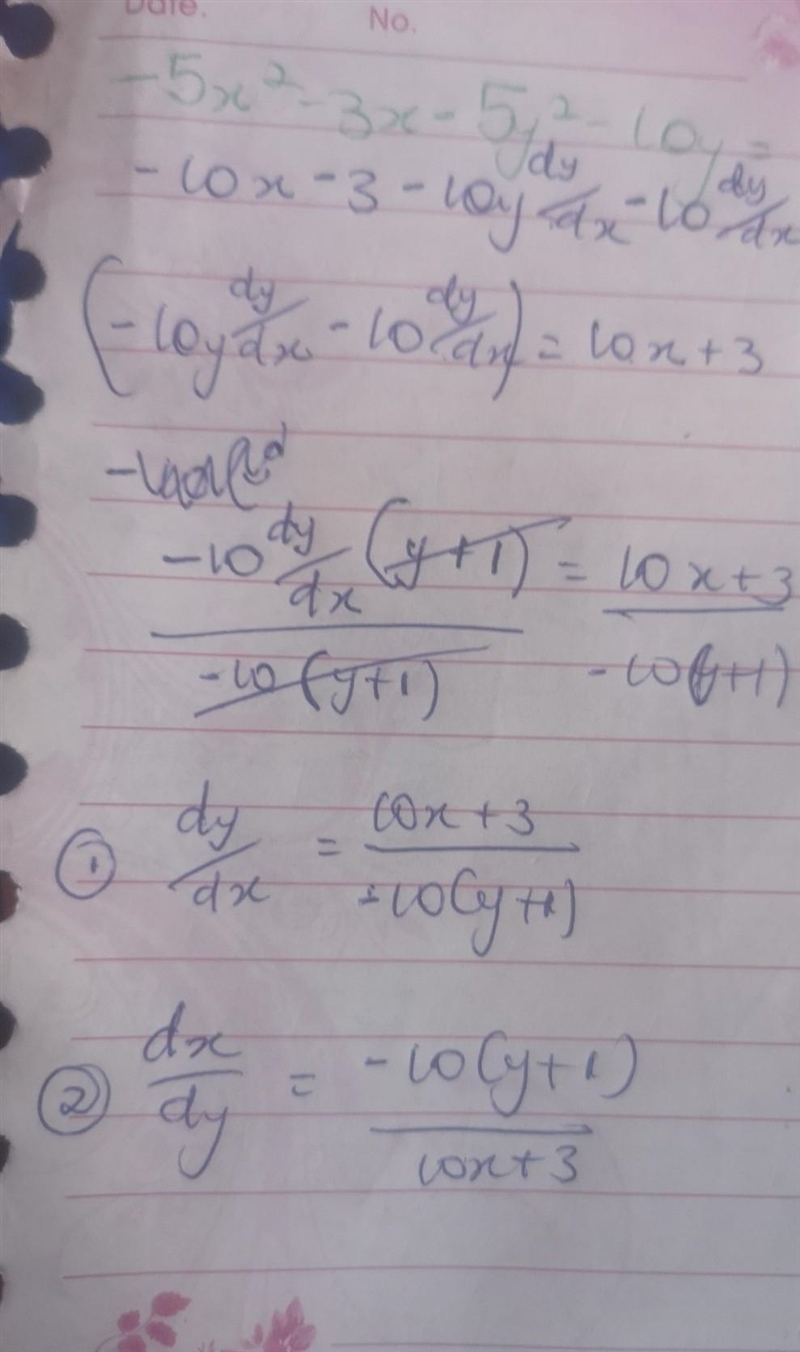 Date. No.
-5x² - 3x - 5y² - 10y =
-10x - 3 - 10y dy/dx - 10 dy/dx
(-10y dy/dx - 10 dy/dx) = 10x + 3
-10 dy/dx (y+1) = 10x+3
-10(y+1) -10(y+1)
① dy/dx = 10x+3
-10(y+1)
② dx/dy = -10(y+1)
10x+3